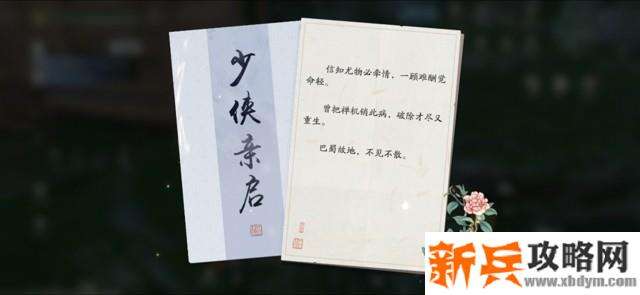 少侠亲启
信知尤物必牵情，一顾难酬觉
命轻。
曾把禅机销此病，破除才尽又
重生。
巴蜀故地，不见不散。
新兵攻略网
www.xbdym.com